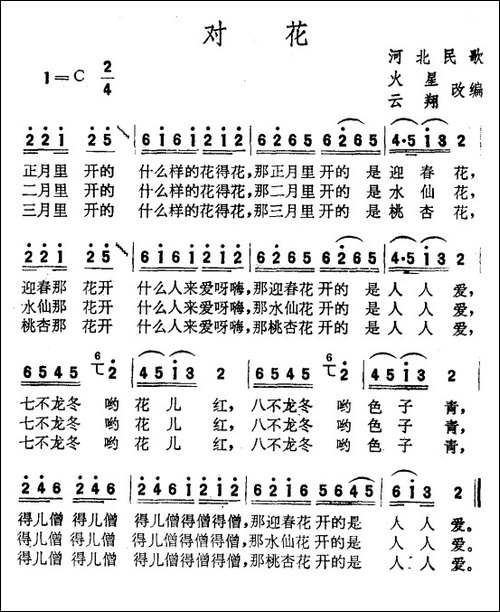 对 花
河北民歌
火星
云翔 改编
1=C 2/4
2 2 1 2 5 6 1 6 1 2 1 2 6 2 6 5 6 2 6 5 4·5 1 3 2
正月里 开的 什么样的花得花,那正月里开的 是迎春花,
二月里 开的 什么样的花得花,那二月里开的 是水仙花,
三月里 开的 什么样的花得花,那三月里开的 是桃杏花,
2 2 1 2 5 6 1 6 1 2 1 2 6 2 6 5 6 2 6 5 4·5 1 3 2
迎春那 花开 什么人来爱呀嗨,那迎春花开的 是人人爱,
水仙那 花开 什么人来爱呀嗨,那水仙花开的 是人人爱,
桃杏那 花开 什么人来爱呀嗨,那桃杏花开的 是人人爱,
6 5 4 5 6 2 4 5 1 3 2 6 5 4 5 6 2 4 5 1 3 2
七不龙冬 哟 花儿红, 八不龙冬 哟色子青,
七不龙冬 哟 花儿红, 八不龙冬 哟色子青,
七不龙冬 哟 花儿红, 八不龙冬 哟色子青,
2 4 6 2 4 6 2 4 6 1 2 1 2 6 2 6 5 5 6 4 5 6 1 3 2
得儿僧 得儿僧 得儿僧得僧得僧,那迎春花开的是 人人爱。
得儿僧 得儿僧 得儿僧得僧得僧,那水仙花开的是 人人爱。
得儿僧 得儿僧 得儿僧得僧得僧,那桃杏花开的是 人人爱。